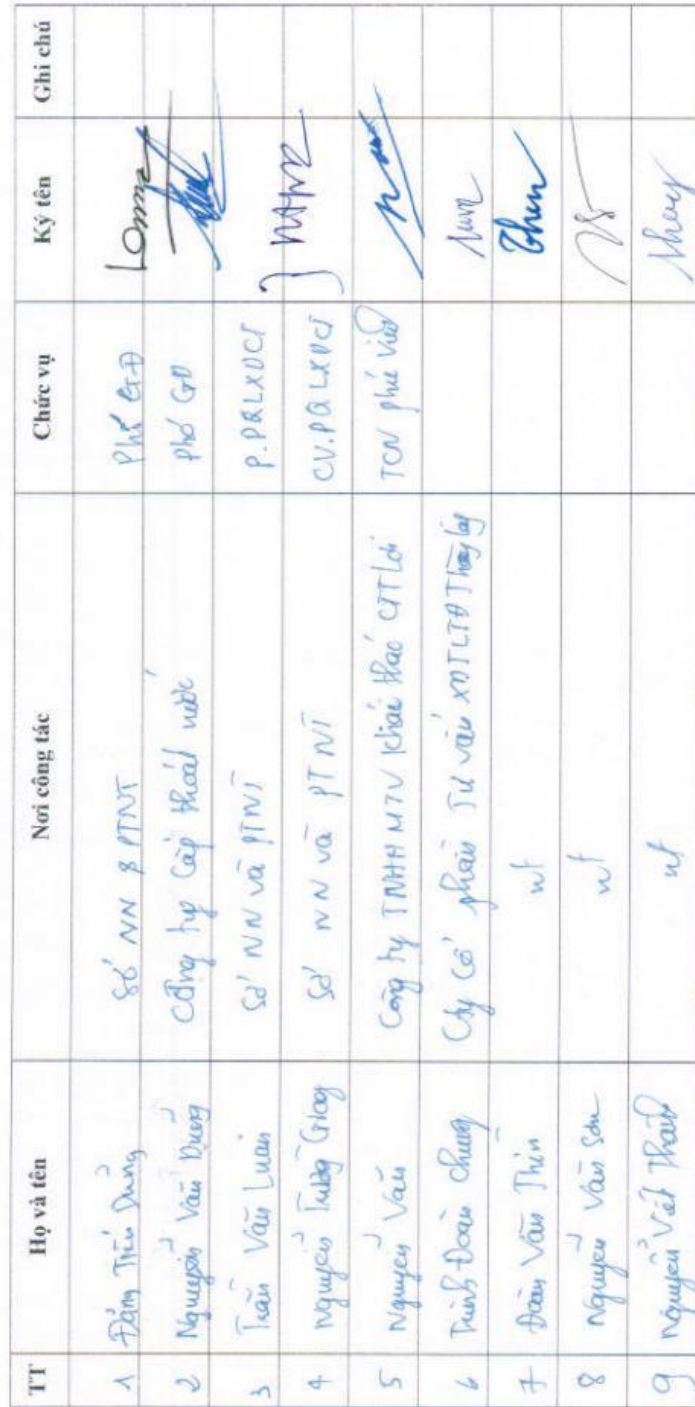 TT Họ và tên Nơi công tác Chức vụ Ký tên Ghi chú
1 Đặng Tiến Dũng Sở NN & PTNT Phó GĐ
2 Nguyễn Văn Dũng Công ty Cấp thoát nước Phó GĐ
3 Trần Văn Luân Sở NN và PTNT P.PQLXDCT
4 Nguyễn Giang Sở NN và PTNT CV.PQLXDCT
5 Nguyễn Văn Công ty TNHH MTV Khai thác CTTLợi TCN phú
6 Trịnh Đoàn Chung Cty Cổ phần Tư vấn
7 Đoàn Văn Thìn nt
8 Nguyễn Văn Sơn nt
9 Nguyễn Viết Thành nt